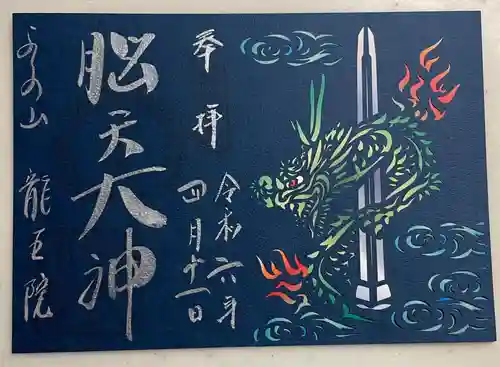 奉拝
令和六年
四月十一日
脳天大神
吉の山
龍王院